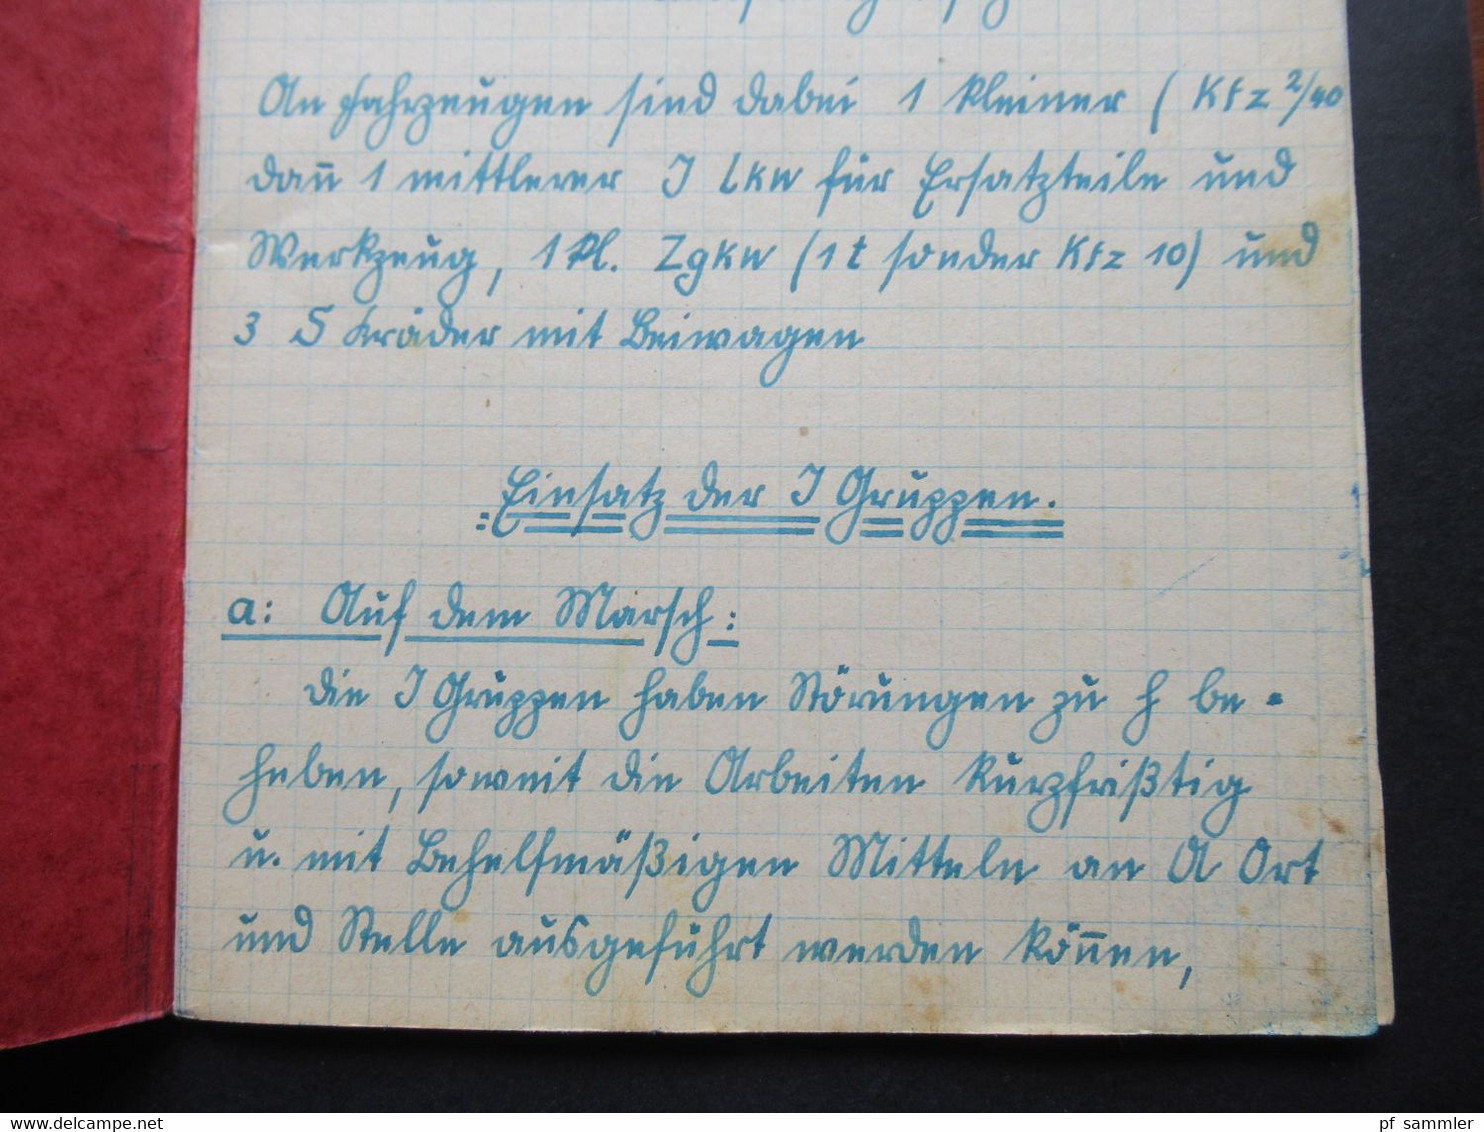 An Fahrzeugen sind dabei 1 kleiner (Kfz 2/40
dan̄ 1 mittlerer J Lkw für Ersatzteile und
Werkzeug, 1 kl. Zgkw (1 t sonder Kfz 10) und
3 S Kräder mit Beiwagen
Einsatz der J Gruppen.
a: Auf dem Marsch:
die J Gruppen haben Störungen zu be-
heben, soweit die Arbeiten kurzfrißtig
u. mit Behelfmäßigen Mitteln an Ort
und Stelle ausgeführt werden kön̄en,
www.delcampe.net
pf_sammler